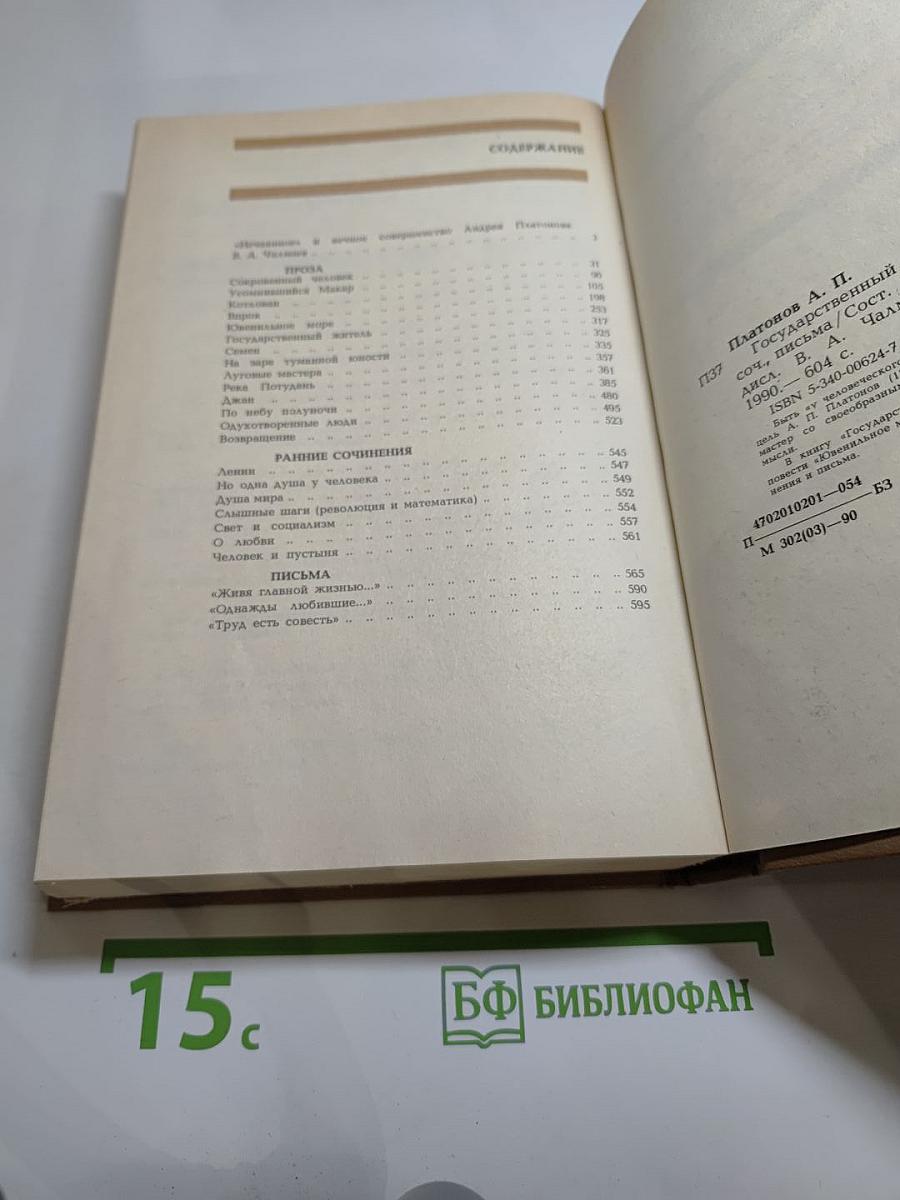 СОДЕРЖАНИЕ
«Нечаянное» и вечное совершенство Андрея Платонова
В. А. Чалмаев .. .. .. .. .. .. .. .. .. .. 3
ПРОЗА
Сокровенный человек .. .. .. .. .. .. .. .. 31
Усомнившийся Макар .. .. .. .. .. .. .. .. 96
Котлован .. .. .. .. .. .. .. .. .. .. 105
Впрок .. .. .. .. .. .. .. .. .. .. 198
Ювенильное море .. .. .. .. .. .. .. .. 253
Государственный житель .. .. .. .. .. .. .. 317
Семен .. .. .. .. .. .. .. .. .. .. 325
На заре туманной юности .. .. .. .. .. .. .. 335
Луговые мастера .. .. .. .. .. .. .. .. 357
Река Потудань .. .. .. .. .. .. .. .. .. 361
Джан .. .. .. .. .. .. .. .. .. .. 385
По небу полуночи .. .. .. .. .. .. .. .. 480
Одухотворенные люди .. .. .. .. .. .. .. .. 495
Возвращение .. .. .. .. .. .. .. .. .. 523
РАННИЕ СОЧИНЕНИЯ
Ленин .. .. .. .. .. .. .. .. .. .. 545
Но одна душа у человека .. .. .. .. .. .. .. 547
Душа мира .. .. .. .. .. .. .. .. .. 549
Слышные шаги (революция и математика) .. .. .. .. 552
Свет и социализм .. .. .. .. .. .. .. .. 554
О любви .. .. .. .. .. .. .. .. .. .. 557
Человек и пустыня .. .. .. .. .. .. .. .. 561
ПИСЬМА
«Живя главной жизнью...» .. .. .. .. .. .. .. 565
«Однажды любившие...» .. .. .. .. .. .. .. 590
«Труд есть совесть» .. .. .. .. .. .. .. .. 595
Платонов А. П.
П37 Государственный
соч., письма / Сост.
дисл. В. А. Чалм
1990.— 604 с.
ISBN 5-340-00624-7
Быть «у человеческого
цель А. П. Платонов (1
мастер со своеобразным
мысли.
В книгу «Государст
повести «Ювенильное м
нения и письма.
4702010201—054
П————БЗ
М 302(03)—90
15 с
БФ БИБЛИОФАН